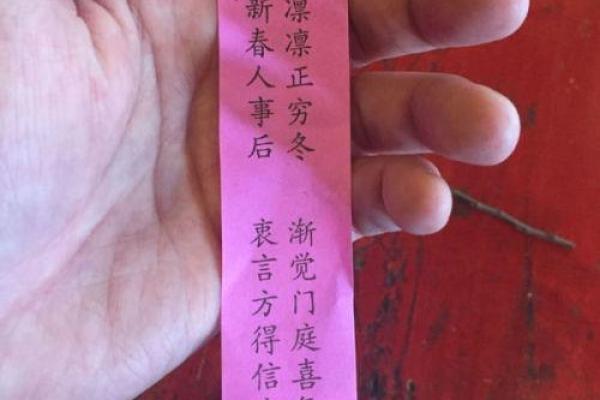 凛凛正穷冬 渐觉门庭喜
新春人事后 衷言方得信